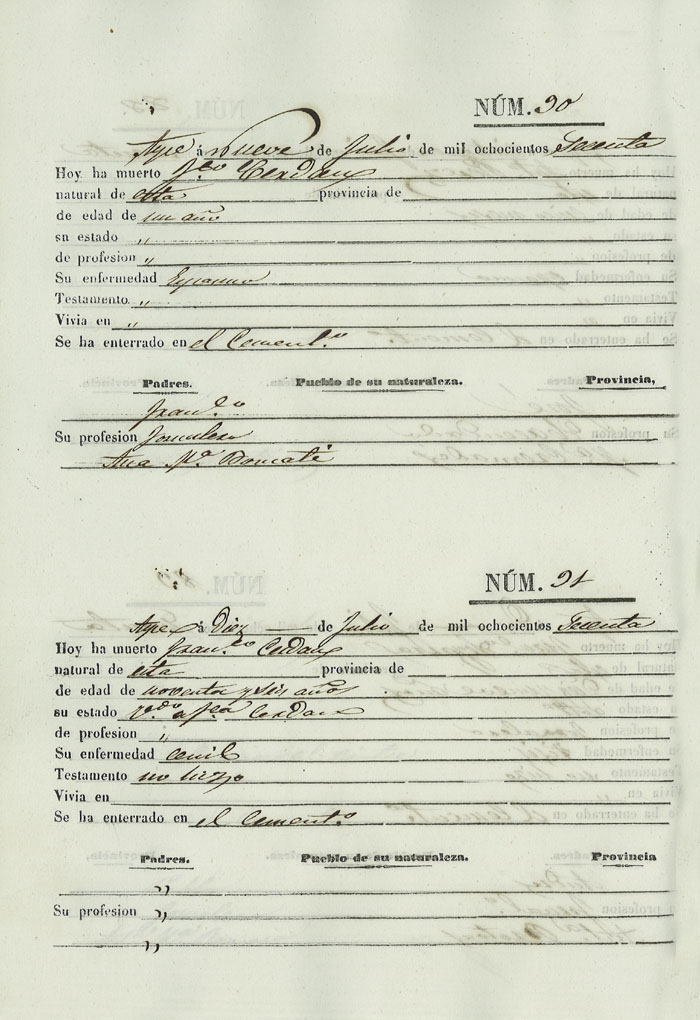 NÚM. 90
Aspe á nueve de Julio de mil ochocientos Secenta
Hoy ha muerto Fco Cerdan
natural de esta provincia de
de edad de un año
sn estado „
de profesion „
Su enfermedad
Testamento „
Vivia en „
Se ha enterrado en el Cement.o
Padres. Pueblo de su naturaleza. Provincia,
Fran.co
Su profesion Jornalero
Ana M.a
NÚM. 91
Aspe á Diez de Julio de mil ochocientos Secenta
Hoy ha muerto Fran.co Cerdan
natural de esta provincia de
de edad de noventa y seis años
su estado V.do a Fca Cerdan
de profesion „
Su enfermedad cenil
Testamento no hizo
Vivia en
Se ha enterrado en el Cement.o
Padres. Pueblo de su naturaleza. Provincia
„
Su profesion „
„